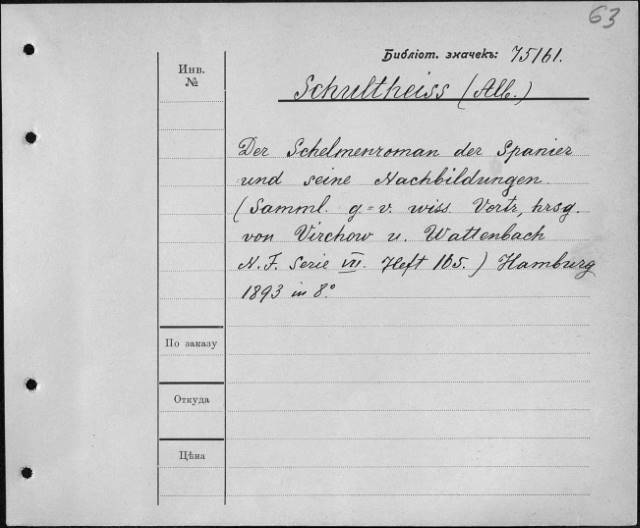 63
Библіот. значекъ: 75161.
Инв.
№
Schultheiss (Alb.)
Der Schelmenroman der Spanier
und seine Nachbildungen.
(Samml. g.=v. wiss. Vortr, hrsg.
von Virchow u. Wattenbach
N. F. Serie VII. Heft 165.) Hamburg
1893 in 8.°
По заказу
Откуда
Цѣна